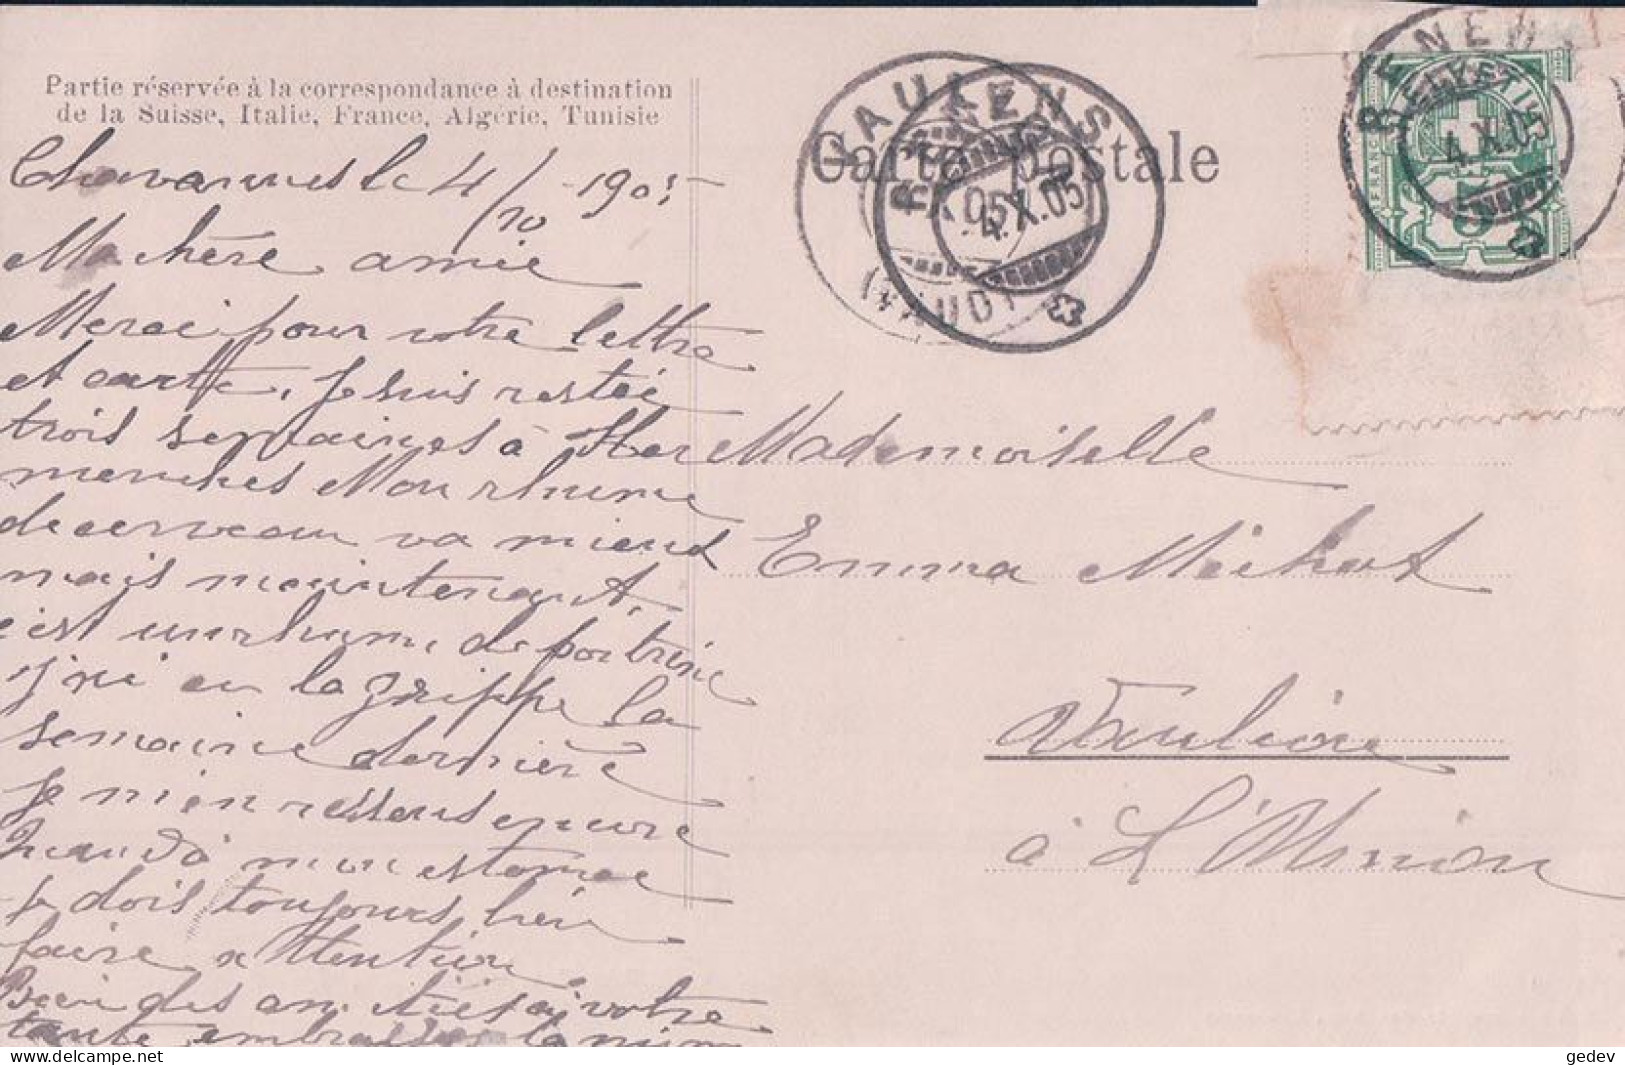 Partie réservée à la correspondance à destination
de la Suisse, Italie, France, Algérie, Tunisie
Carte postale
VAULENS
(VAUD)
RENENS
4.X.05
RENENS
4.X.05
HELVETIA
FRANCO
5
Chavannes le 4/10 -1905
Ma chère amie
Merci pour votre lettre
et carte. Je suis restée
trois semaines à
Mon rhume
de cerveau va mieux
mais maintenant,
c'est un rhume de poitrine
j'ai eu la grippe la
semaine dernière
je m'en ressens encore
Quand à mon estomac
je dois toujours bien
faire attention
Bien des amitiés à votre
tante, embrasser la
Mademoiselle
Emma
Vaulion
à L'
gedev
delcampe.net